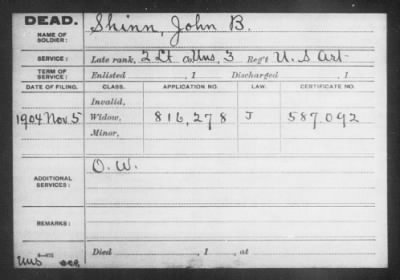 DEAD.
NAME OF SOLDIER: Shinn, John B.
SERVICE: Late rank, 2 Lt Co. Uns, 3 Reg't U. S Art
TERM OF SERVICE: Enlisted , 1 Discharged , 1
DATE OF FILING. CLASS. APPLICATION NO. LAW. CERTIFICATE NO.
Invalid,
1904 Nov. 5 Widow, 816,278 J 587,092
Minor,
ADDITIONAL SERVICES: O. W.
REMARKS:
Died , 1 , at
Uns